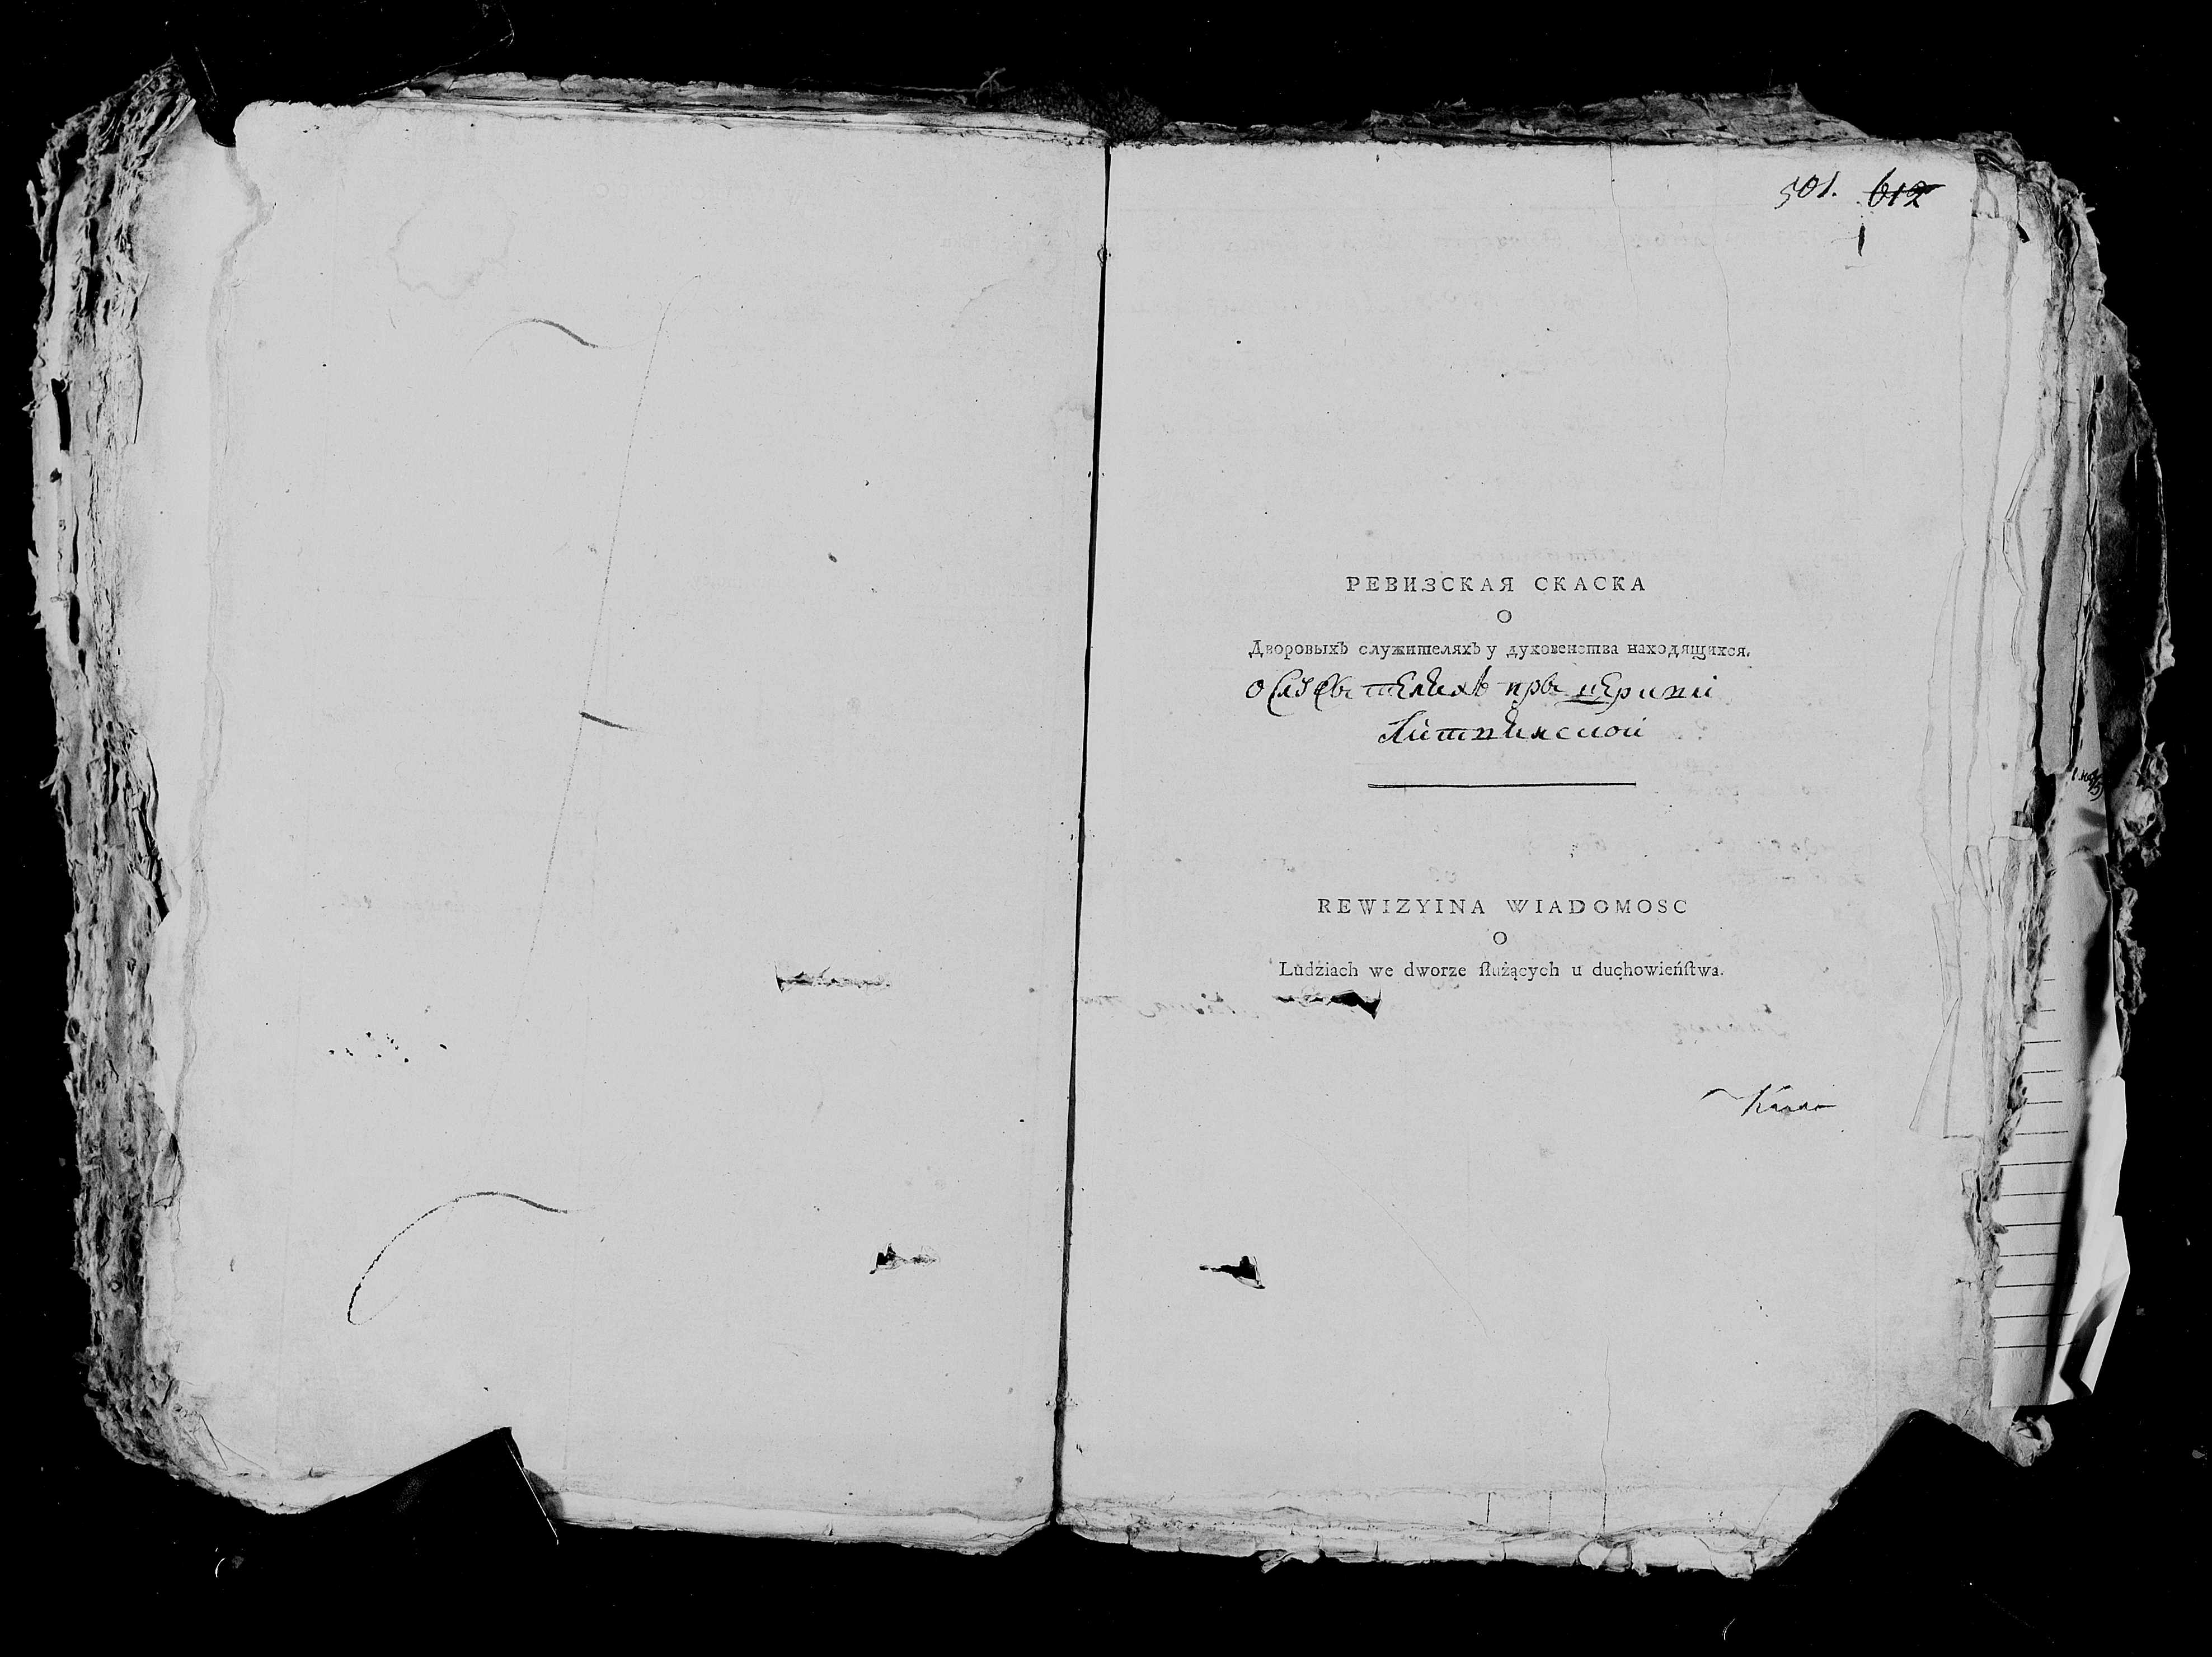 501. 612
1
РЕВИЗСКАЯ СКАСКА
О
Дворовыхъ служителяхъ у духовенства находящихся.
о служителяхъ при церкви
REWIZYINA WIADOMOSC
O
Ludziach we dworze ſłużących u duchowieńſtwa.